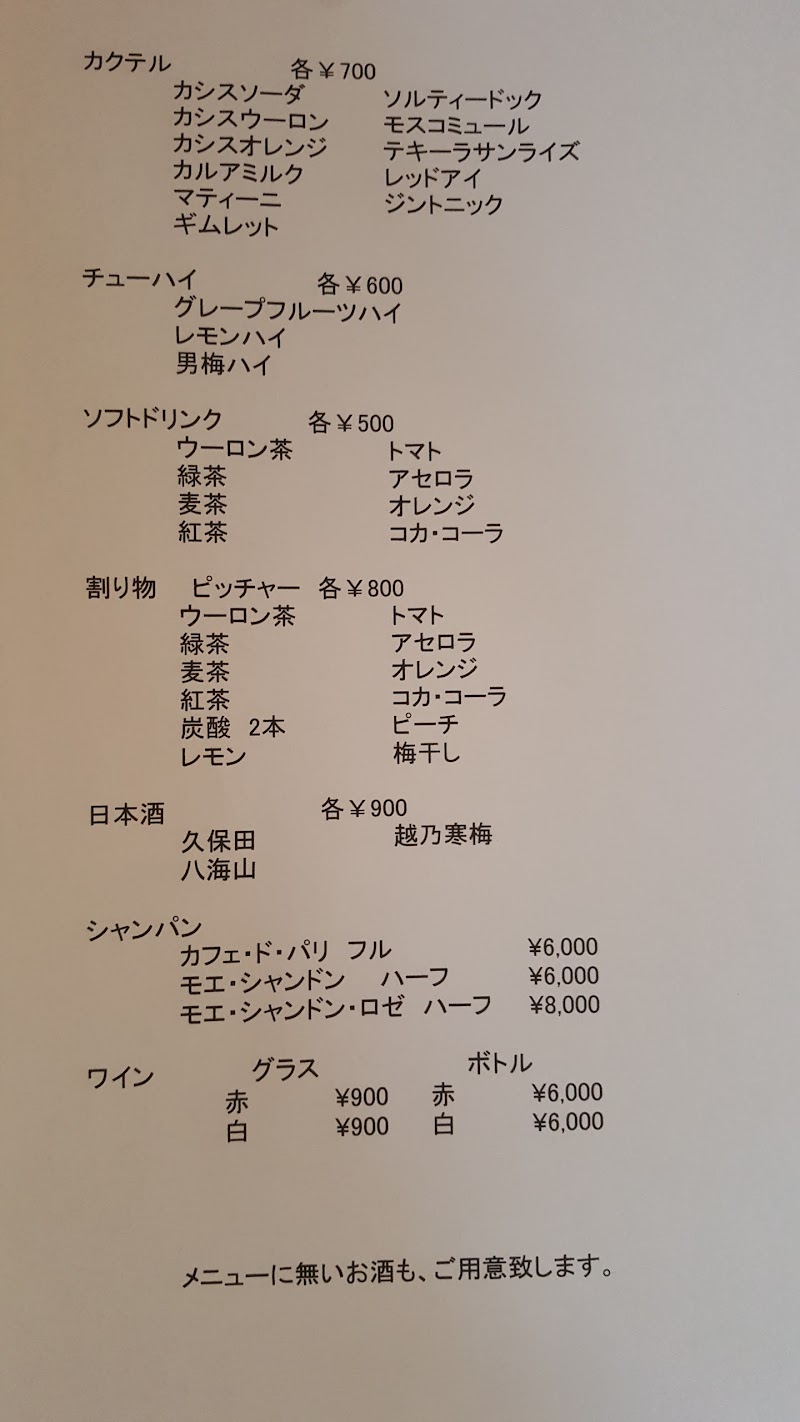 カクテル 各￥700
カシスソーダ ソルティードック
カシスウーロン モスコミュール
カシスオレンジ テキーラサンライズ
カルアミルク レッドアイ
マティーニ ジントニック
ギムレット
チューハイ 各￥600
グレープフルーツハイ
レモンハイ
男梅ハイ
ソフトドリンク 各￥500
ウーロン茶 トマト
緑茶 アセロラ
麦茶 オレンジ
紅茶 コカ・コーラ
割り物 ピッチャー 各￥800
ウーロン茶 トマト
緑茶 アセロラ
麦茶 オレンジ
紅茶 コカ・コーラ
炭酸 2本 ピーチ
レモン 梅干し
日本酒 各￥900
久保田 越乃寒梅
八海山
シャンパン
カフェ・ド・パリ フル ¥6,000
モエ・シャンドン ハーフ ¥6,000
モエ・シャンドン・ロゼ ハーフ ¥8,000
ワイン グラス ボトル
赤 ¥900 赤 ¥6,000
白 ¥900 白 ¥6,000
メニューに無いお酒も、ご用意致します。